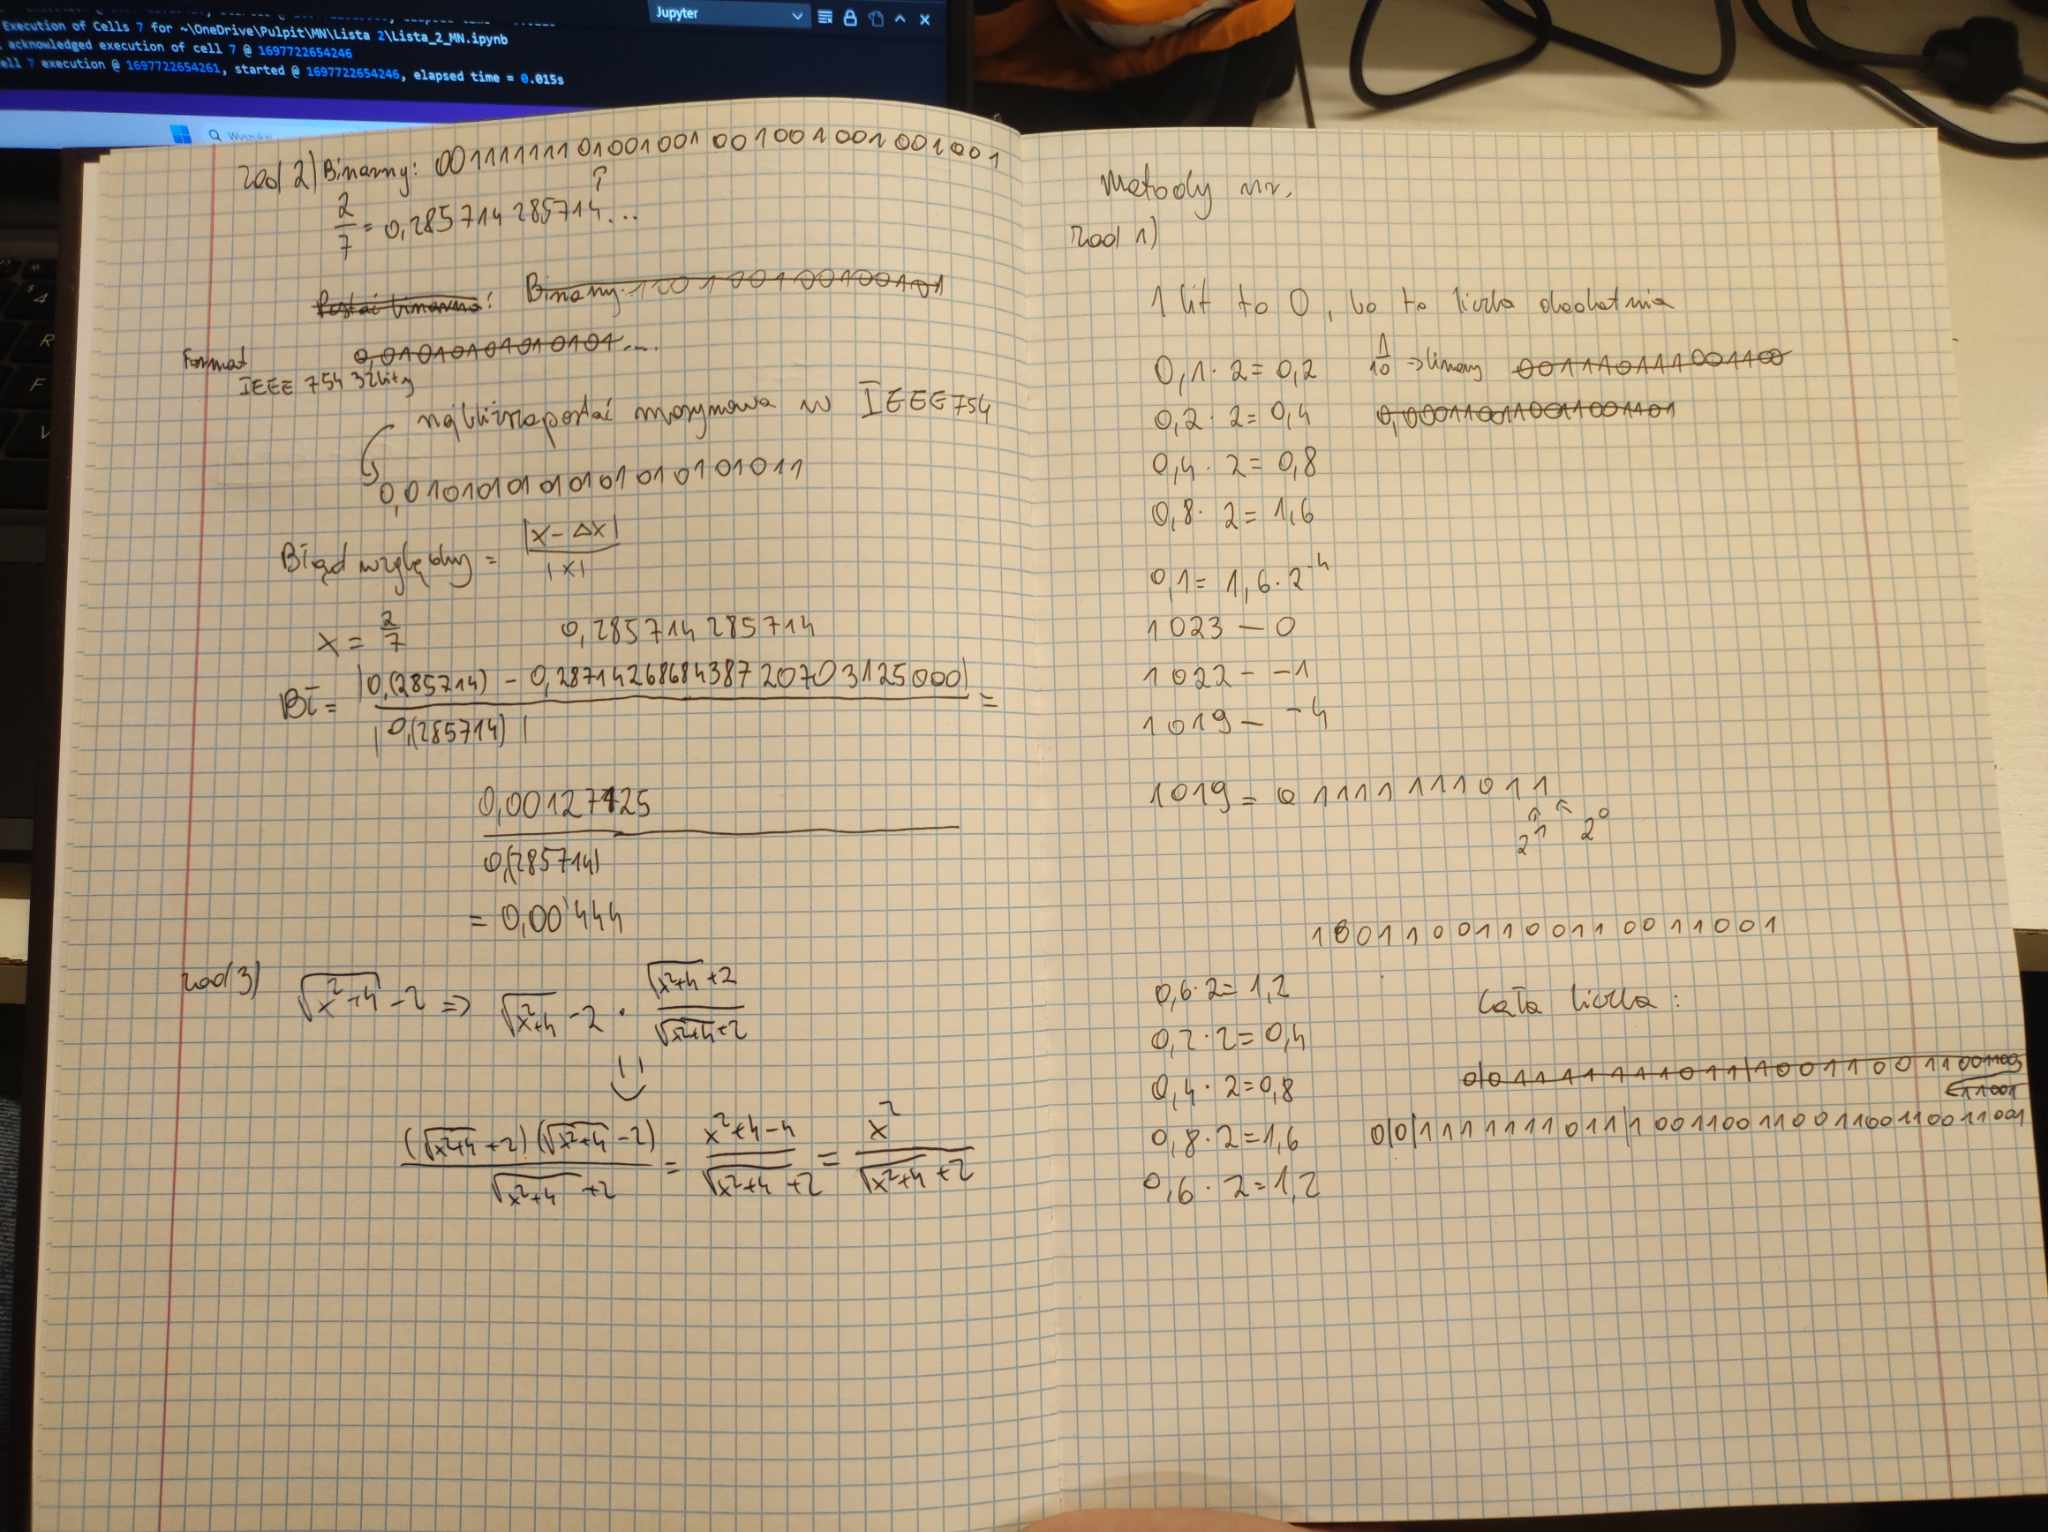 Jupyter
Execution of Cells 7 for ~\OneDrive\Pulpit\MN\Lista 2\Lista_2_MN.ipynb
acknowledged execution of cell 7 @ 1697722654246
ell 7 execution @ 1697722654261, started @ 1697722654246, elapsed time = 0.015s
zad 2) Binarny: 00111111101001001001001001001001
?
2/7 = 0,285714 285714...
Postać binarna: Binarny:
0,01010101010101....
Format
IEEE 754 32bity
najbliższa postać maszynowa w IEEE754
0,010101010101010101011
Błąd względny = |x - Δx| / |x|
x = 2/7 0,285714 285714
Bł = |0,(285714) - 0,2871426868438720703125000| / |0,(285714)| =
0,00127425 / 0,(285714)
= 0,00444
zad 3) √x²+4 - 2 => √x²+4 - 2 · √x²+4 + 2 / √x²+4 + 2
(√x²+4 + 2)(√x²+4 - 2) / √x²+4 + 2 = x²+4-4 / √x²+4 + 2 = x² / √x²+4 + 2
Metody nr.
zad 1)
1 bit to 0, bo to liczba dodatnia
0,1 · 2 = 0,2 1/10 -> binary 0011101111001100
0,2 · 2 = 0,4 0,000110110011001101
0,4 · 2 = 0,8
0,8 · 2 = 1,6
0,1 = 1,6 · 2⁻⁴
1023 – 0
1022 – -1
1019 – -4
1019 = 01111111011
2¹ 2⁰
1001100110011001 1001
0,6 · 2 = 1,2 Cała liczba:
0,2 · 2 = 0,4
0,4 · 2 = 0,8
11001
0,8 · 2 = 1,6 0|01111111011|1001100110011001100110011001
0,6 · 2 = 1,2